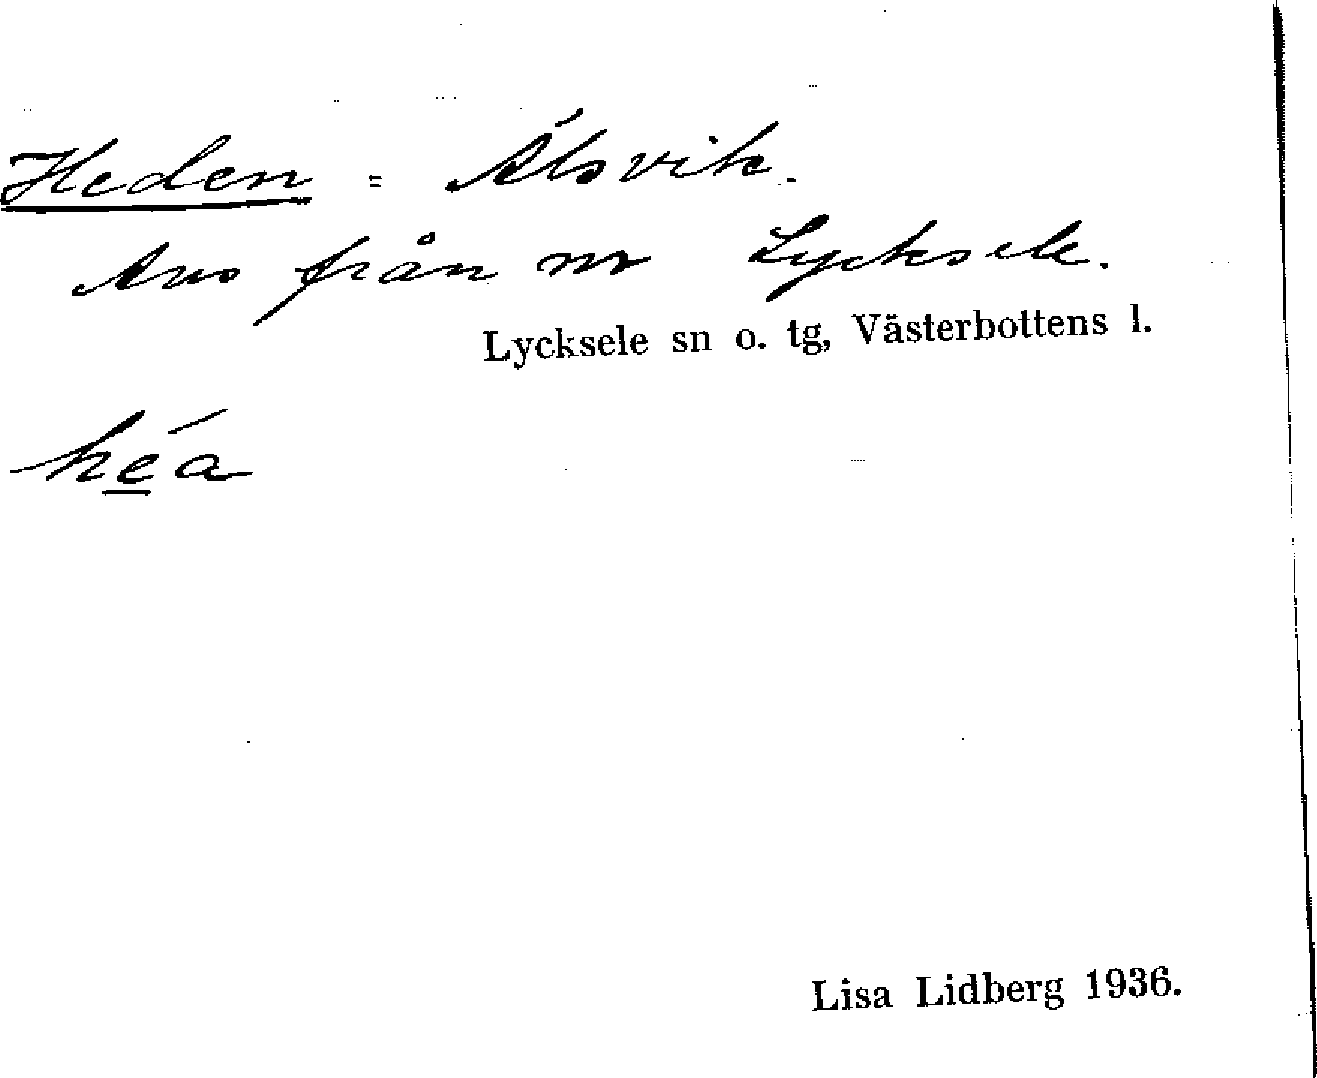 Heden = Älsvik.
Avs från nr Lycksele.
Lycksele sn o. tg, Västerbottens l.
héa
Lisa Lidberg 1936.